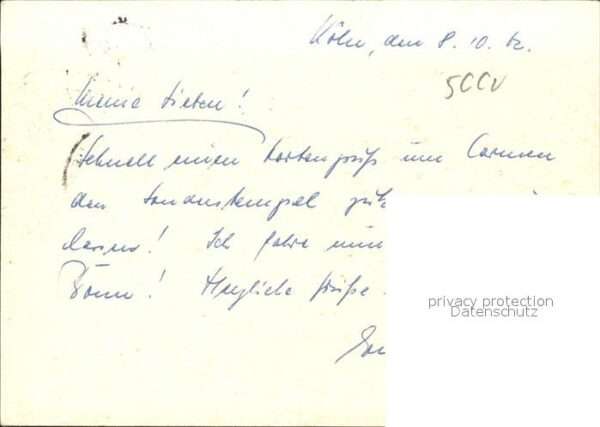 Köln, den 8. 10. 62.
Meine Lieben!
Schnell einen Kartengruß um Carmen
den Sonderstempel
lassen! Ich fahre nun
Bonn! Herzliche Grüße.
privacy protection
Datenschutz